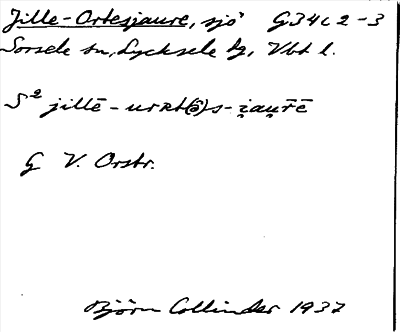 Jille-Ortesjaure, sjö G34c2-3
Sorsele sn, Lycksele tg, Vbt l.
S² jillē-urʀt(ə̑)s-i̯au̯r̄ē
G V. Orstr.
Björn Collinder 1937